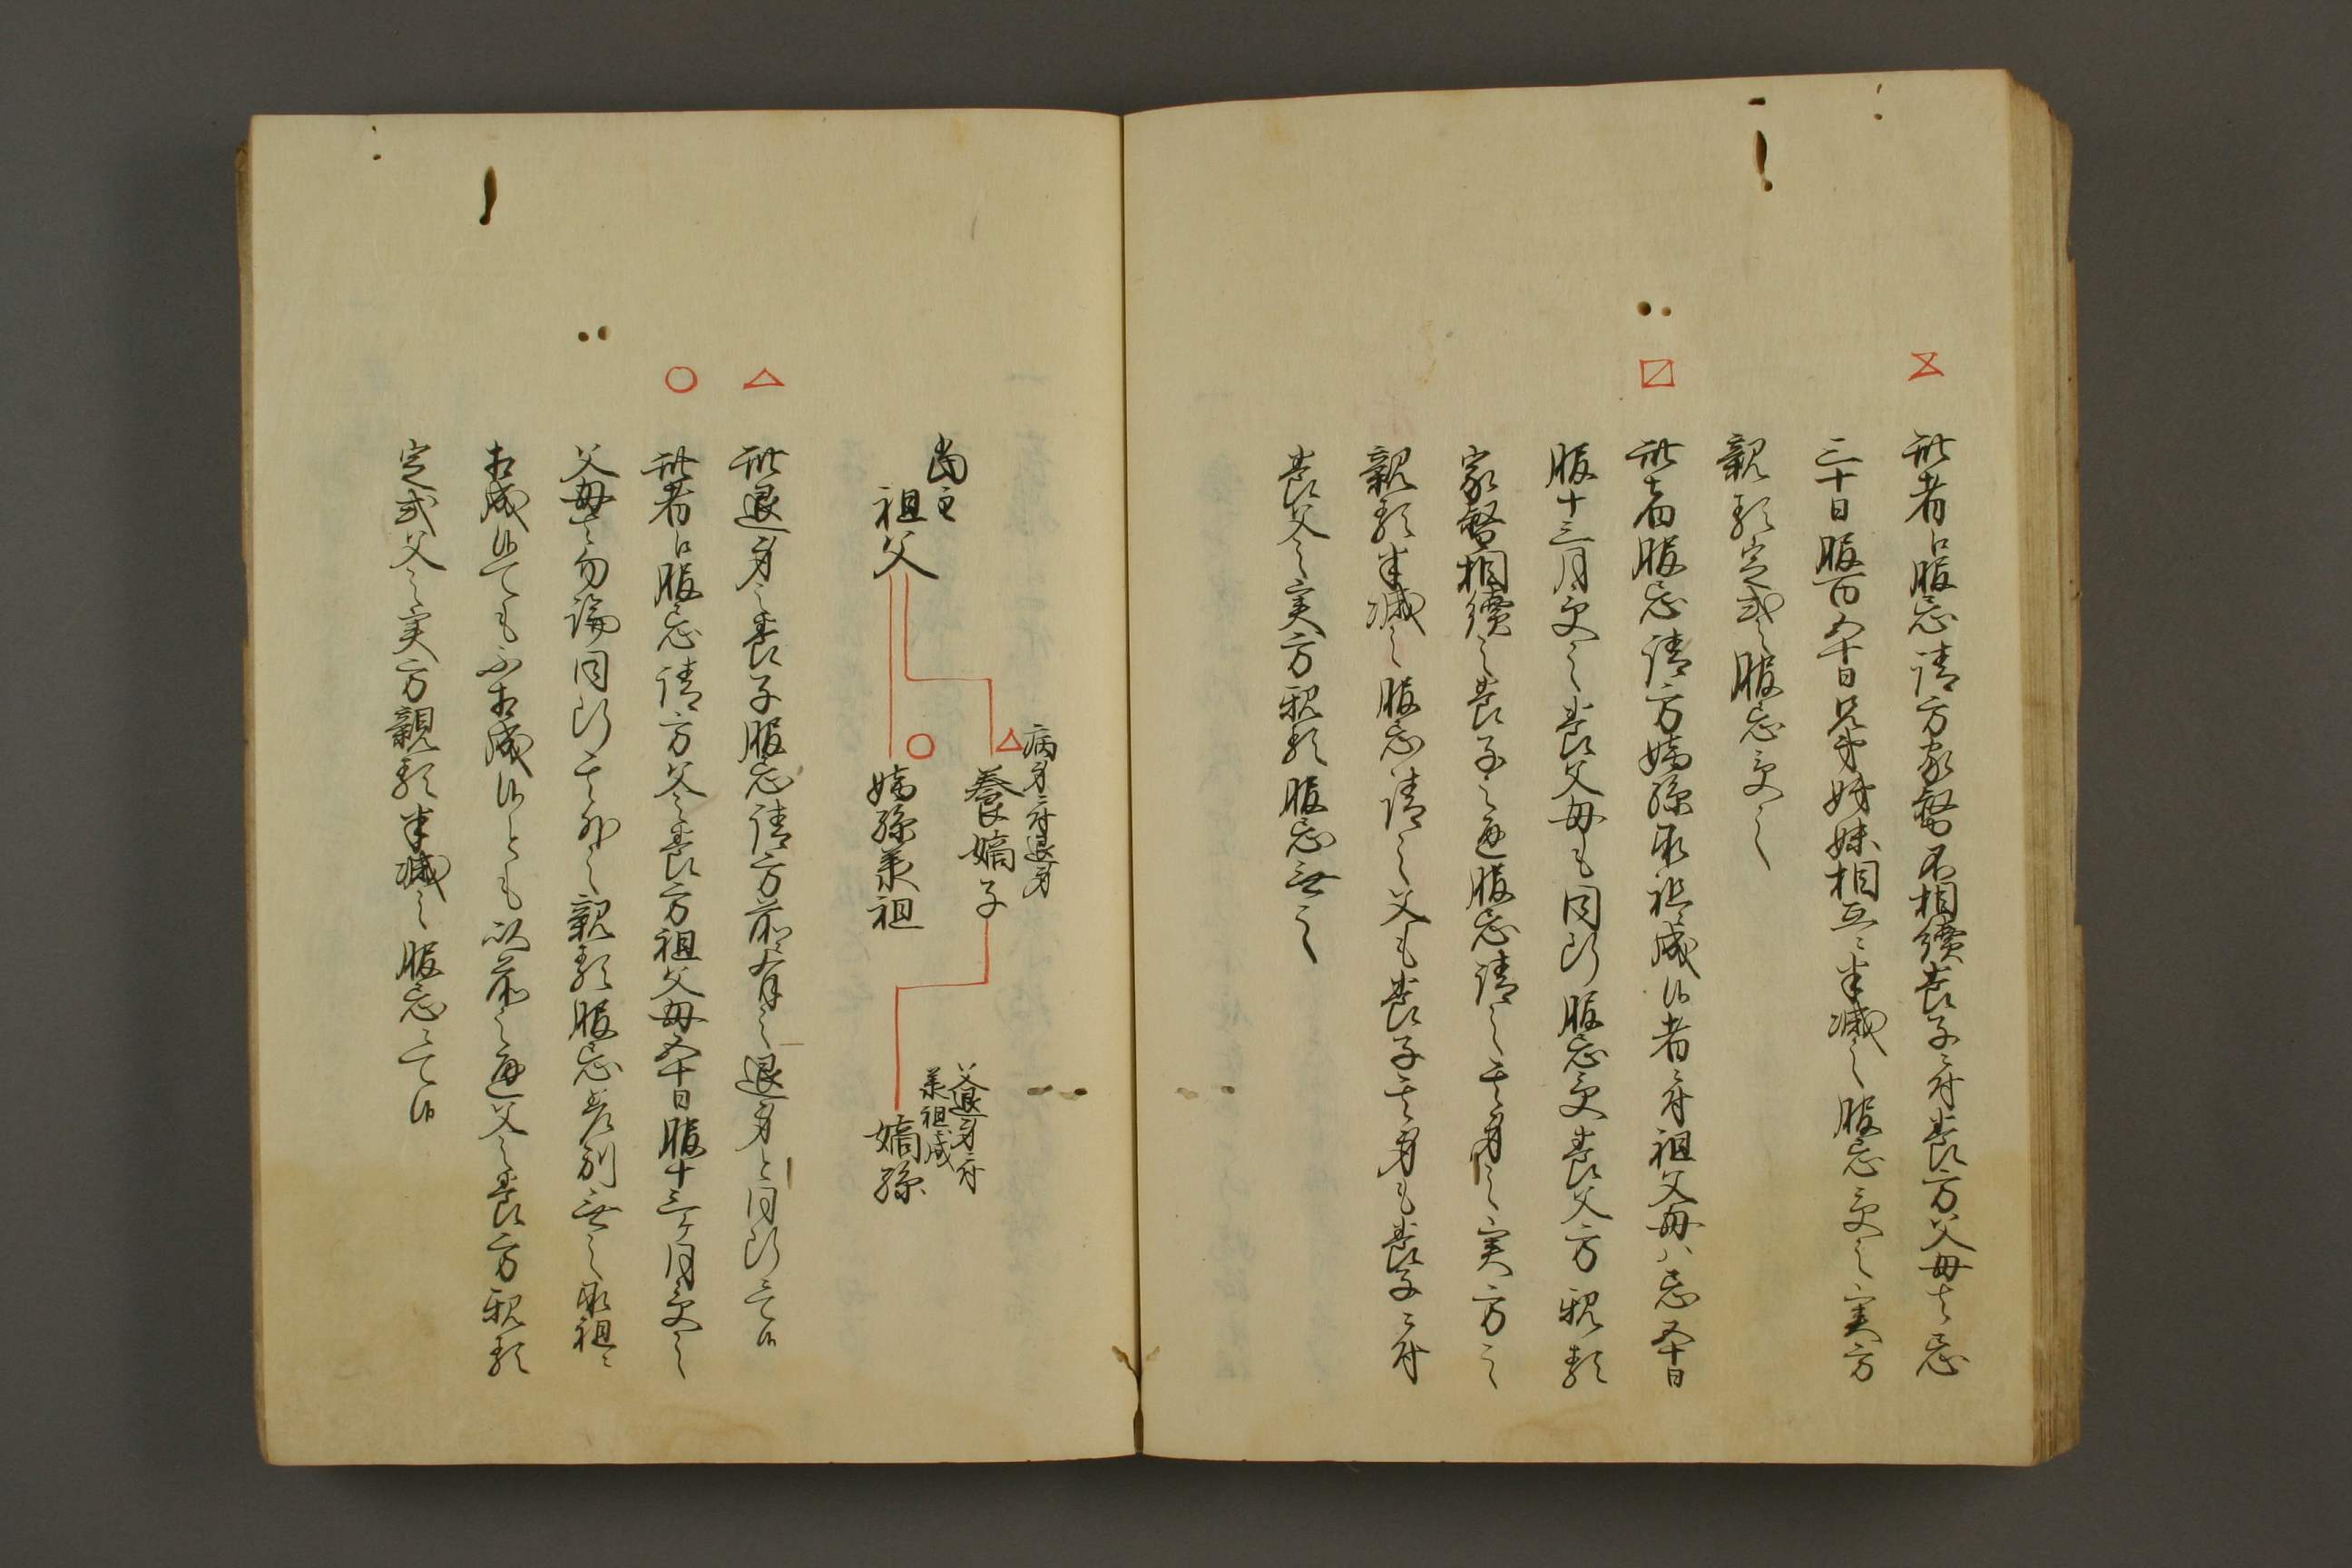 此者ハ服忌請方家督不相続養子ニ付養方父母者忌
三十日服百五十日兄弟姉妹相互ニ半減之服忌受之実方
親類定式之服忌受之
此者服忌請方嫡孫承祖ニ成候者ニ付祖父母ハ忌五十日
服十三月受之養父母も同断服忌受養父方親類
家督相続之養子之通服忌請之其身之実方之
親類半減之服忌請之父も養子其身も養子ニ付
養父之実方親類服忌無之
当主
祖父
病身ニ付退身
養嫡子
嫡孫承祖
父退身ニ付
承祖ニ成
嫡孫
此退身之養子服忌請方前ニ有之退身と同断ニ而候
此者ハ服忌請方父之養方祖父母五十日服十三ヶ月受之
父母者勿論同断其外之親類服忌差別無之承祖ニ
相成候ても不相成候とも以前之通父之養方親類
定式父之実方親類半減之服忌ニて候